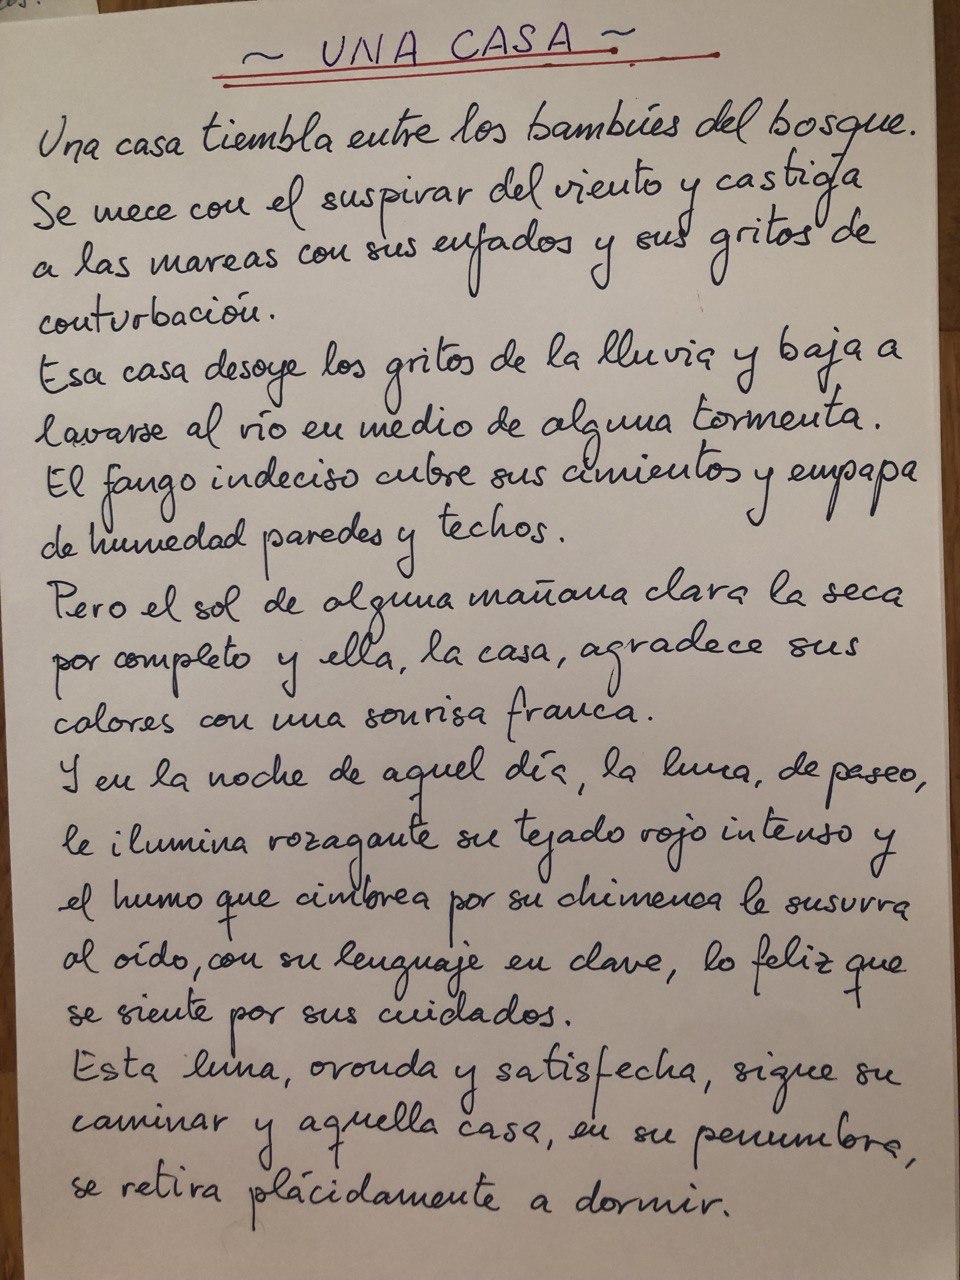 ~ UNA CASA ~
Una casa tiembla entre los bambúes del bosque.
Se mece con el suspirar del viento y castiga
a las mareas con sus enfados y sus gritos de
conturbación.
Esa casa desoye los gritos de la lluvia y baja a
lavarse al río en medio de alguna tormenta.
El fango indeciso cubre sus cimientos y empapa
de humedad paredes y techos.
Pero el sol de alguna mañana clara la seca
por completo y ella, la casa, agradece sus
calores con una sonrisa franca.
Y en la noche de aquel día, la luna, de paseo,
le ilumina rozagante su tejado rojo intenso y
el humo que cimbrea por su chimenea le susurra
al oído, con su lenguaje en clave, lo feliz que
se siente por sus cuidados.
Esta luna, oronda y satisfecha, sigue su
caminar y aquella casa, en su penumbra,
se retira plácidamente a dormir.